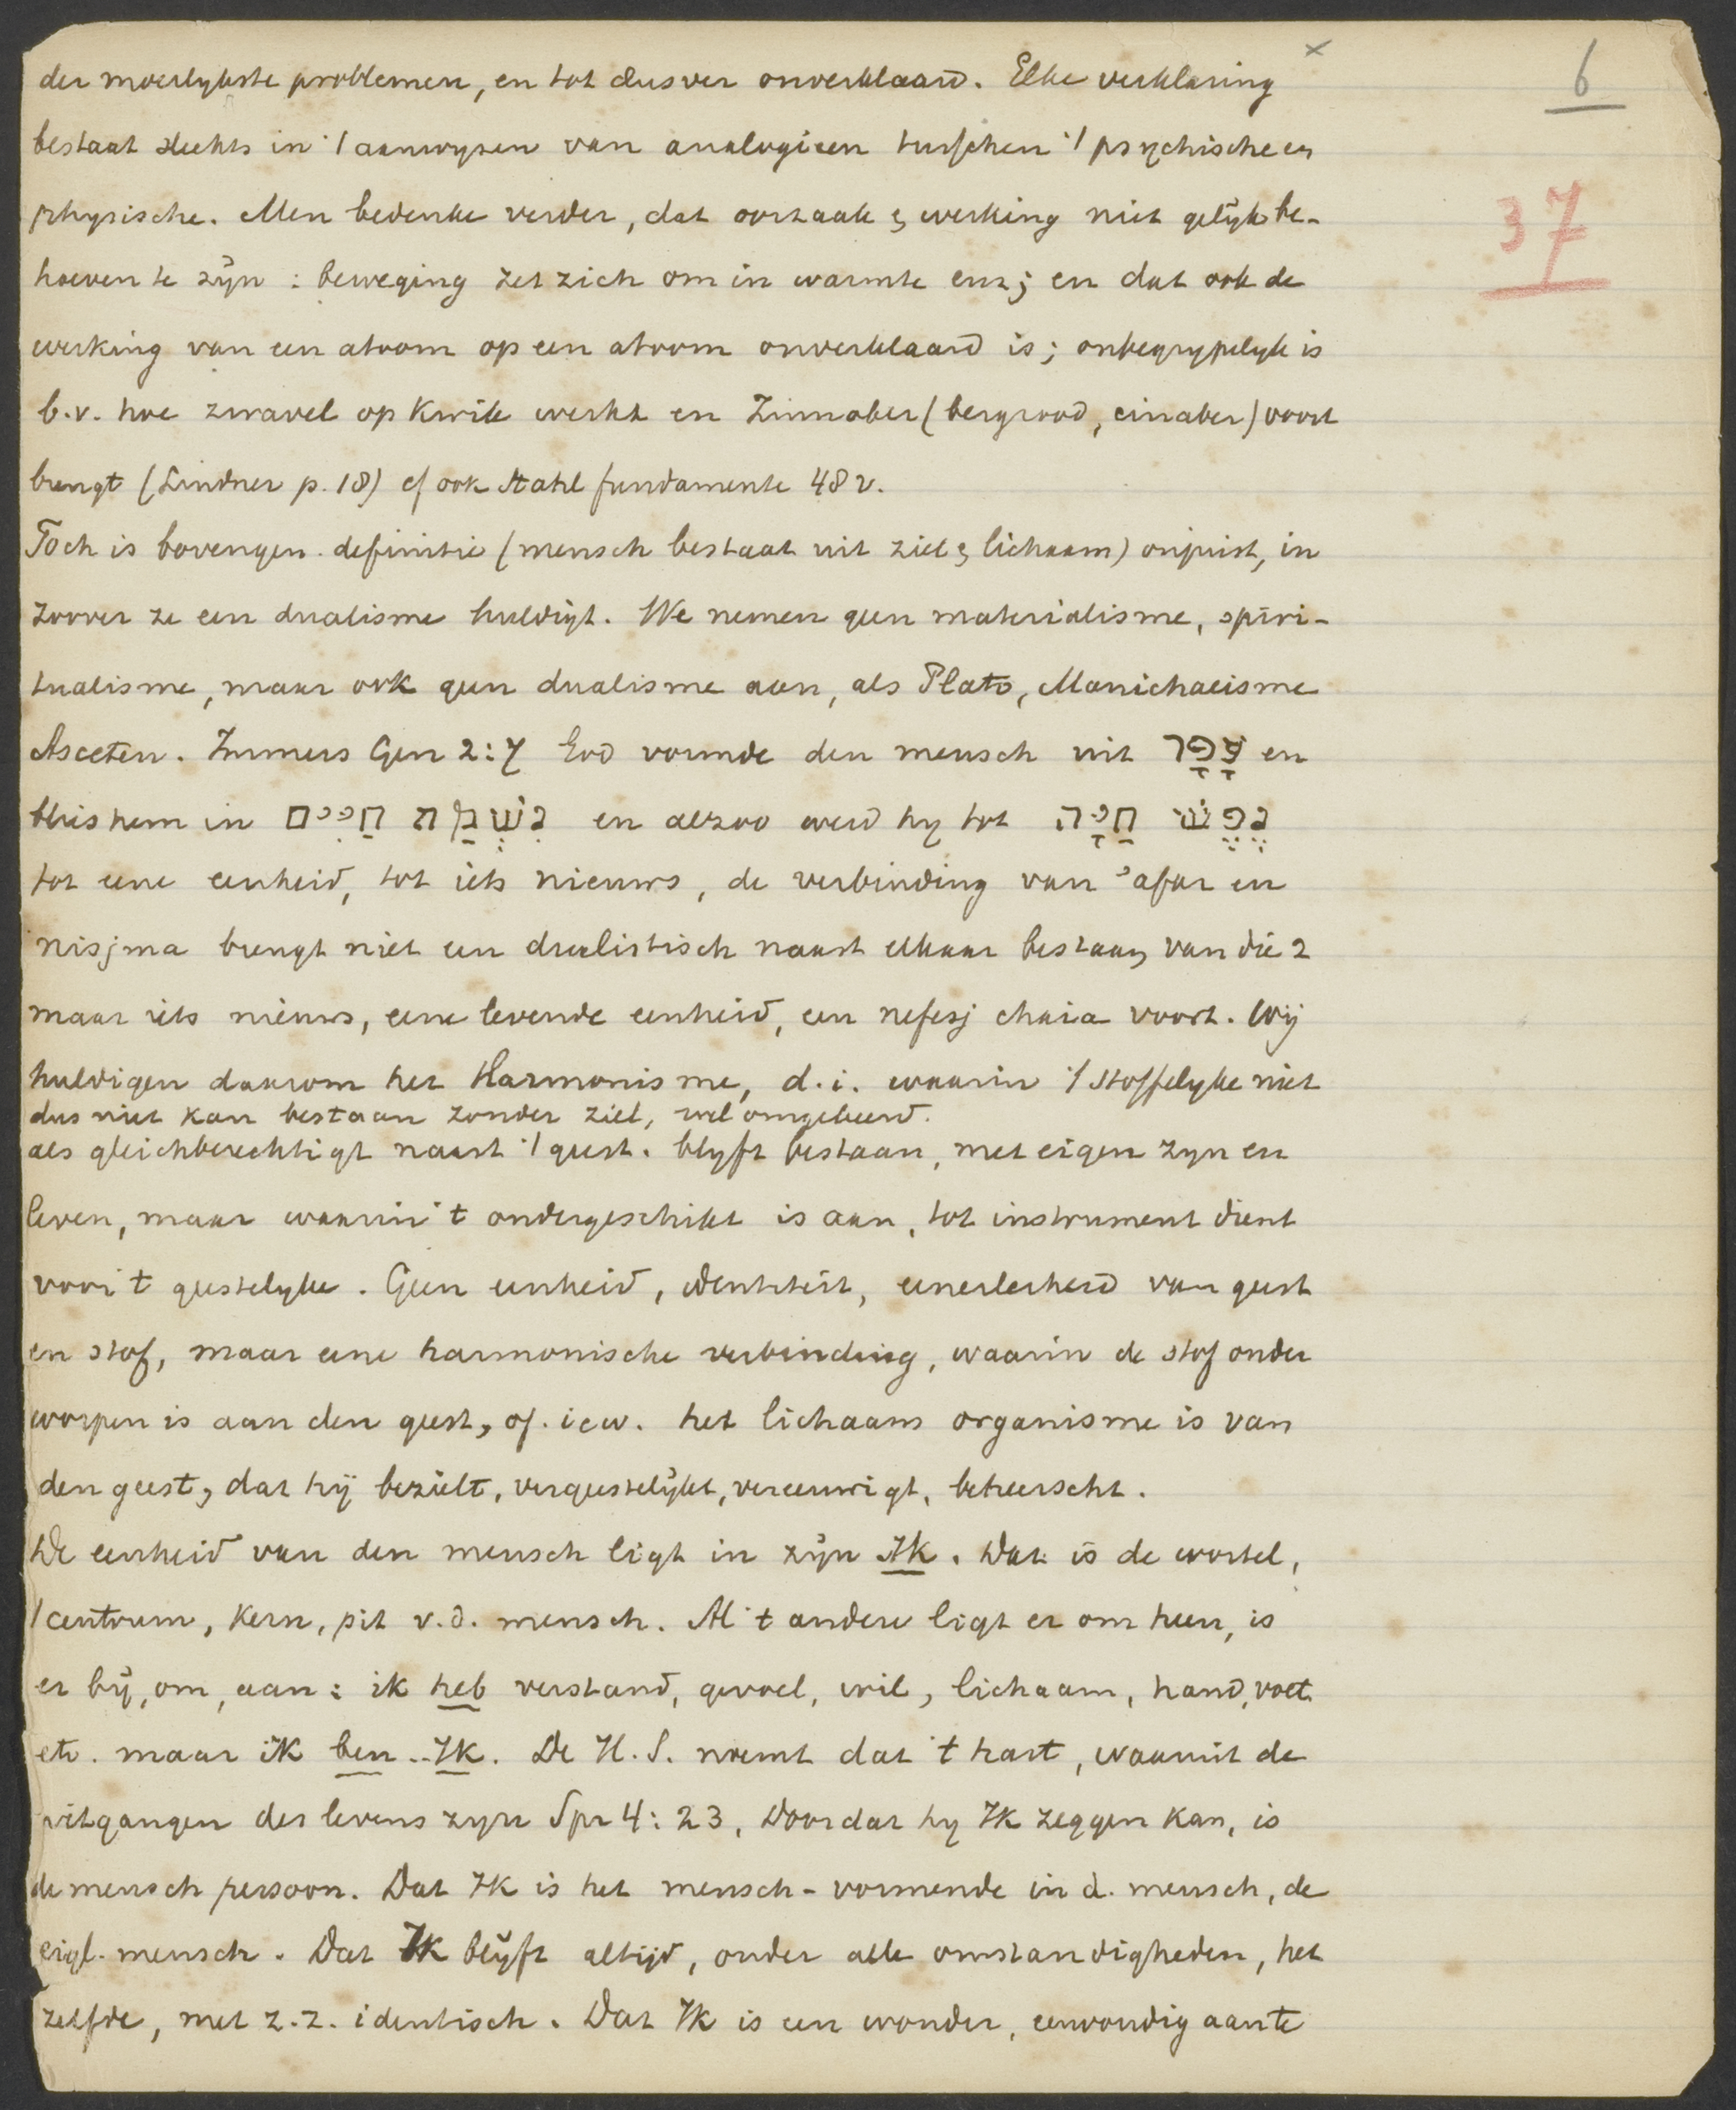 6
37
der moeilykste problemen, en tot dusver onverklaard. Elke verklaring x
bestaat slechts in 't aanwyzen van analogieen tusschen 't psychische en
physische. Men bedenke verder, dat oorzaak & werking niet gelijk be-
hoeven te zijn : beweging zet zich om in warmte enz; en dat ook de
werking van een atoom op een atoom onverklaard is; onbegrypelyk is
b.v. hoe zwavel op Kwik werkt en Zinnober (bergrood, cinaber) voort
brengt (Lindner p. 18) cf ook Stahl fundamente 48 v.
Toch is bovengen. definitie (mensch bestaat uit ziel & lichaam) onjuist, in
zoover ze een dualisme huldigt. We nemen geen materialisme, spiri-
tualisme, maar ook geen dualisme aan, als Plato, Manichaeisme
Asceten. Immers Gen 2:7 God vormde den mensch uit עָפָר en
blies hem in נִשְׁמַת חַיִּים en alzoo werd hy tot נֶפֶשׁ חַיָּה
tot eene eenheid, tot iets nieuws, de verbinding van 'afar en
nisjma brengt niet een dualistisch naast elkaar bestaan van die 2
maar iets nieuws, eene levende eenheid, een nefesj chaia voort. Wij
huldigen daarom het Harmonisme, d.i. waarin 't stoffelyke niet
dus niet kan bestaan zonder ziel, wel omgekeerd.
als gleichberechtigt naast 't geest. blyft bestaan, met eigen zyn en
leven, maar waarin 't ondergeschikt is aan, tot instrument dient
voor 't geestelyke. Geen eenheid, identiteit, eenerleiheid van geest
en stof, maar eene harmonische verbinding, waarin de stof onder
worpen is aan den geest, of. i e w. het lichaam organisme is van
den geest, dat hij bezielt, vergeestelijkt, vereeuwigt, beheerscht.
De eenheid van den mensch ligt in zijn Ik. Dat is de wortel,
't centrum, kern, pit v.d. mensch. Al 't andere ligt er om heen, is
er bij, om, aan : ik heb verstand, gevoel, wil, lichaam, hand, voet
etc. maar ik ben .. Ik. De H.S. noemt dat 't hart, waaruit de
uitgangen des levens zyn Spr 4:23, Doordat hy Ik zeggen kan, is
de mensch persoon. Dat Ik is het mensch-vormende in d. mensch, de
eigl. mensch. Dat Ik blijft altijd, onder alle omstandigheden, het
zelfde, met z.z. identisch. Dat Ik is een wonder, eenvoudig aan te